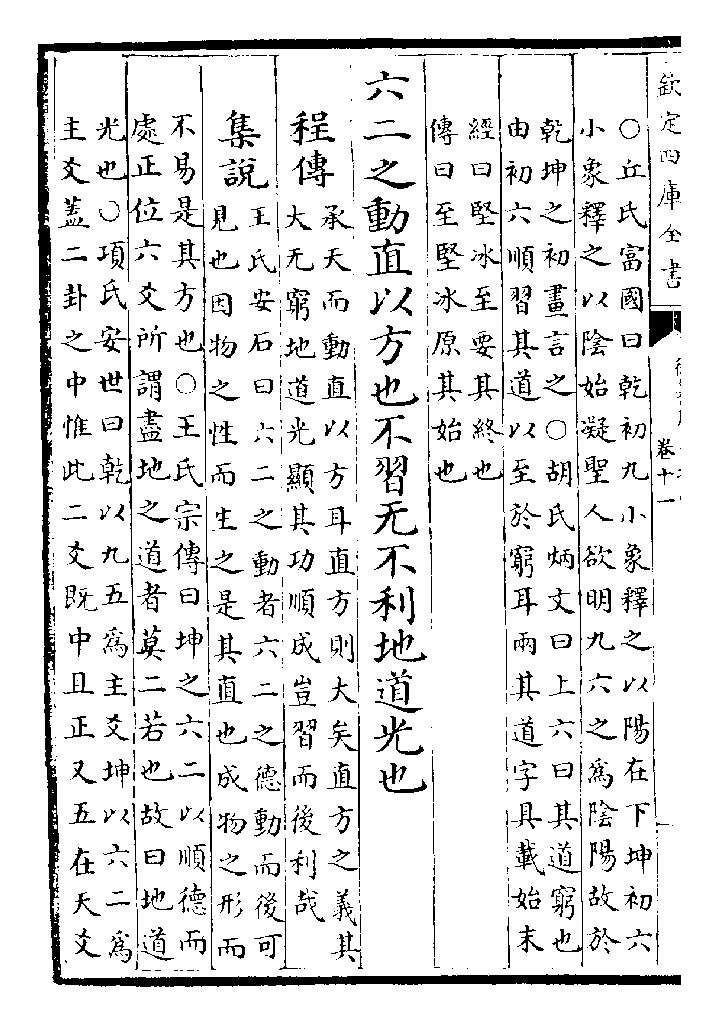 欽定四庫全書
卷十一
○丘氏富國曰乾初九小象釋之以陽在下坤初六
小象釋之以陰始凝聖人欲明九六之為陰陽故於
乾坤之初畫言之○胡氏炳文曰上六曰其道窮也
由初六順習其道以至於窮耳兩其道字具載始末
經曰堅冰至要其終也
傳曰至堅冰原其始也
六二之動直以方也不習无不利地道光也
程傳
承天而動直以方耳直方則大矣直方之義其
大无窮地道光顯其功順成豈習而後利哉
集說
王氏安石曰六二之動者六二之德動而後可
見也因物之性而生之是其直也成物之形而
不易是其方也○王氏宗傳曰坤之六二以順德而
處正位六爻所謂盡地之道者莫二若也故曰地道
光也○項氏安世曰乾以九五為主爻坤以六二為
主爻蓋二卦之中惟此二爻既中且正又五在天爻